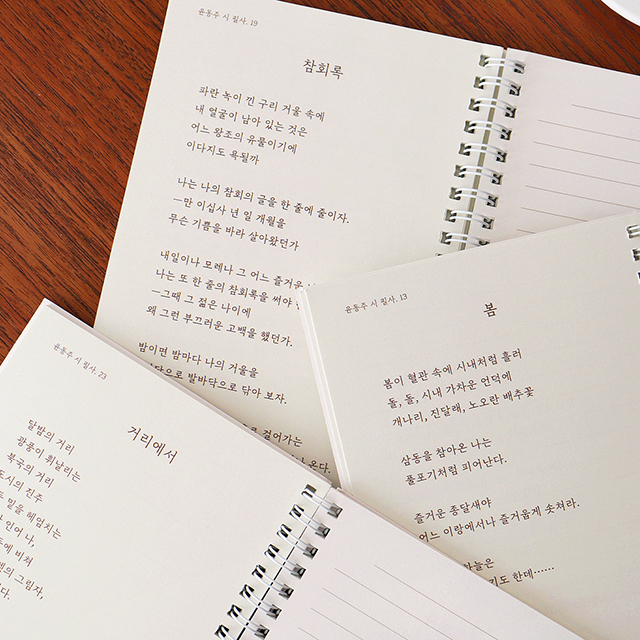 윤동주 시 필사. 19
참회록
파란 녹이 낀 구리 거울 속에
내 얼굴이 남아 있는 것은
어느 왕조의 유물이기에
이다지도 욕될까
나는 나의 참회의 글을 한 줄에 줄이자.
—만 이십사 년 일 개월을
무슨 기쁨을 바라 살아왔던가
내일이나 모레나 그 어느 즐거운
나는 또 한 줄의 참회록을 써야
—그때 그 젊은 나이에
왜 그런 부끄러운 고백을 했던가.
밤이면 밤마다 나의 거울을
바닥으로 발바닥으로 닦아 보자.
로 걸어가는
나 온다.
윤동주 시 필사. 13
봄
봄이 혈관 속에 시내처럼 흘러
돌, 돌, 시내 가차운 언덕에
개나리, 진달래, 노오란 배추꽃
삼동을 참아온 나는
풀포기처럼 피어난다.
즐거운 종달새야
어느 이랑에서나 즐거웁게 솟쳐라.
하늘은
기도 한데……
윤동주 시 필사. 23
거리에서
달밤의 거리
광풍이 휘날리는
북국의 거리
도시의 진주
밑을 헤엄치는
인어 나,
에 비쳐
의 그림자,
다.